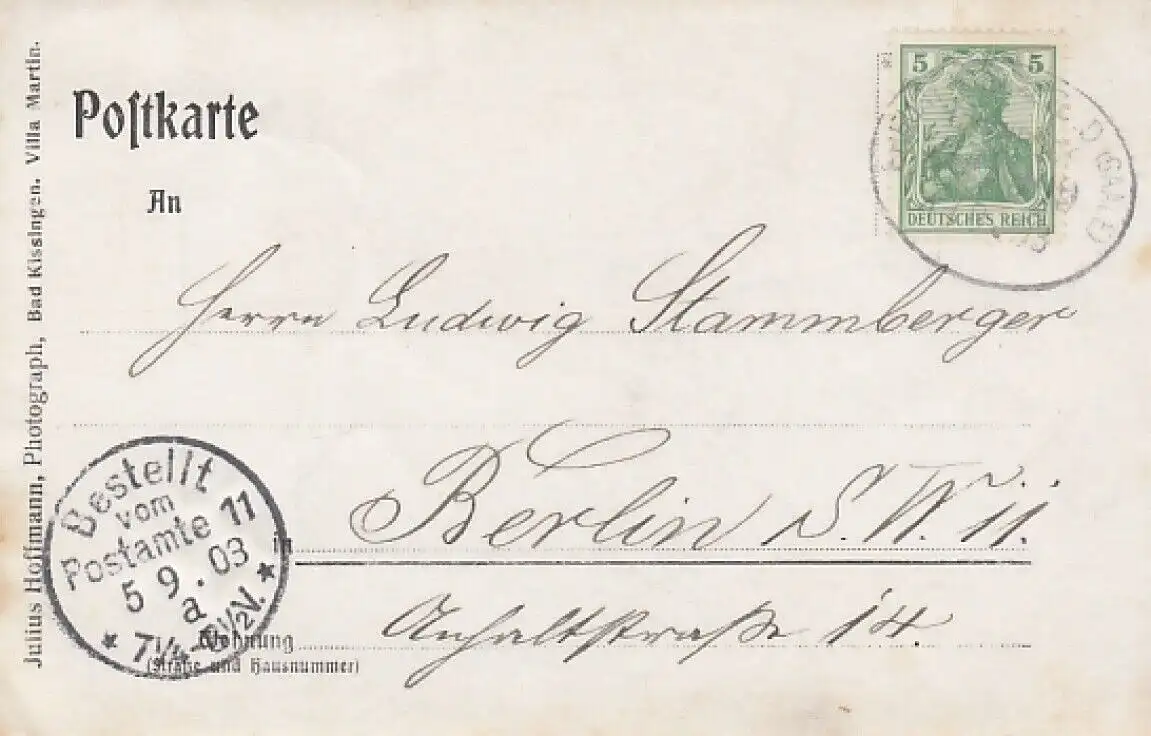 Postkarte
An
Herrn Ludwig Stammberger
in Berlin S.W. 11.
Wohnung Anhaltstraße 14.
(Straße und Hausnummer)
Julius Hoffmann, Photograph, Bad Kissingen. Villa Martin.
5 5
DEUTSCHES REICH
Bestellt
vom
Postamte 11
5 9. 03
a
* 7¼-8½N. *